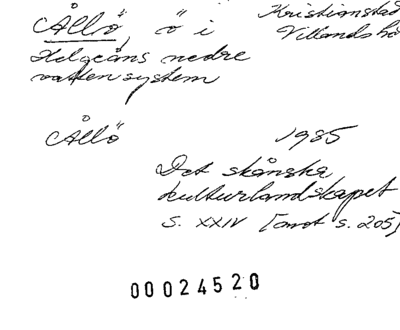 Ållö, ö i Kristianstad
Helgeåns nedre Villands hd
vattensystem
Ållö 1985
Det skånska
kulturlandskapet
S. XXIV [anot s. 205]
00024520